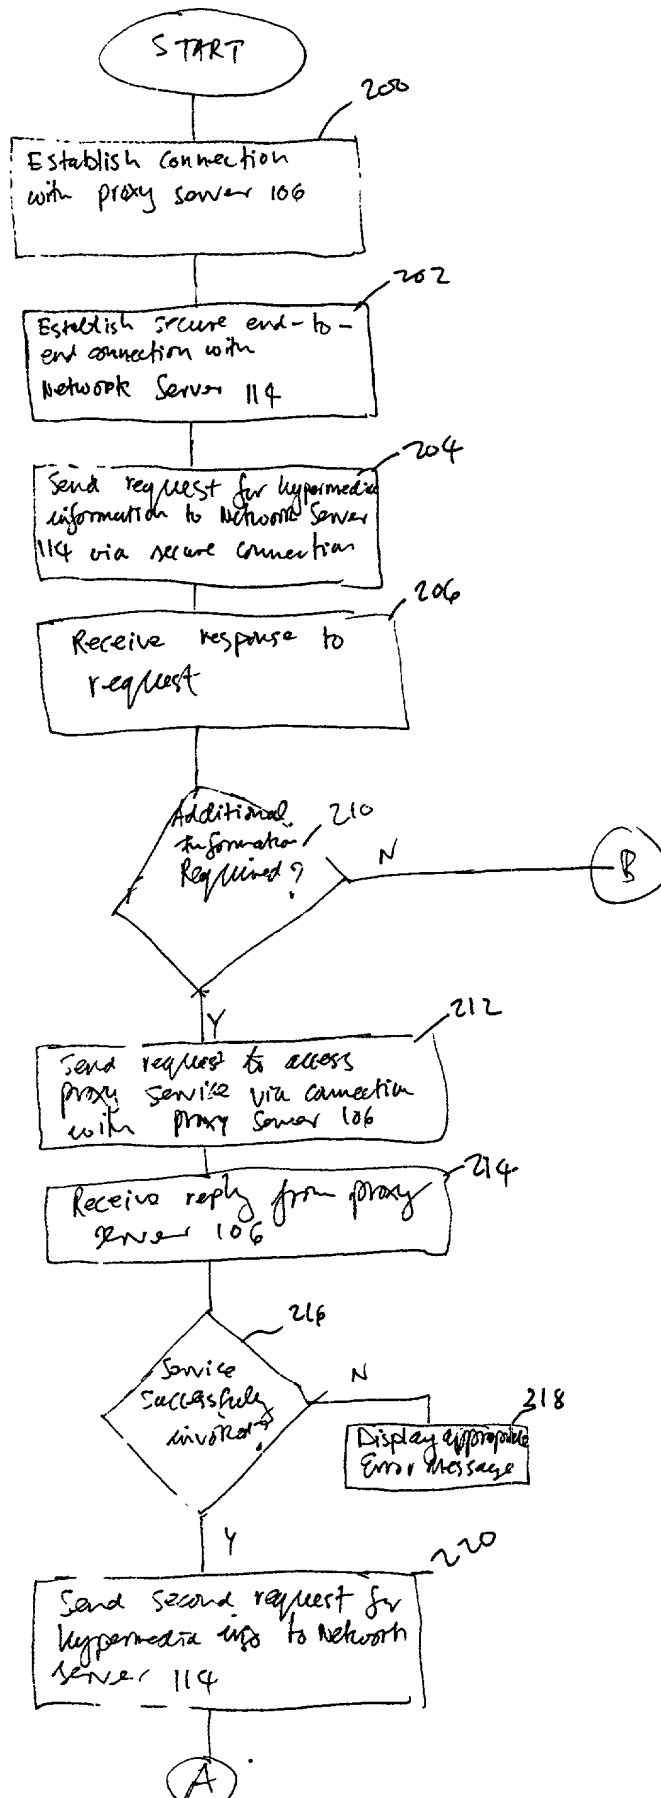 START
200
Establish connection
with proxy server 106
202
Establish secure end-to-
end connection with
Network Server 114
204
Send request for hypermedia
information to Network Server
114 via secure connection
206
Receive response to
request
Additional
Information
Required?
210
N
B
Y
212
Send request to access
proxy service via connection
with proxy server 106
214
Receive reply from proxy
server 106
216
Service
successfully
invoked?
N
218
Display appropriate
Error Message
Y
220
Send second request for
hypermedia info to Network
server 114
A